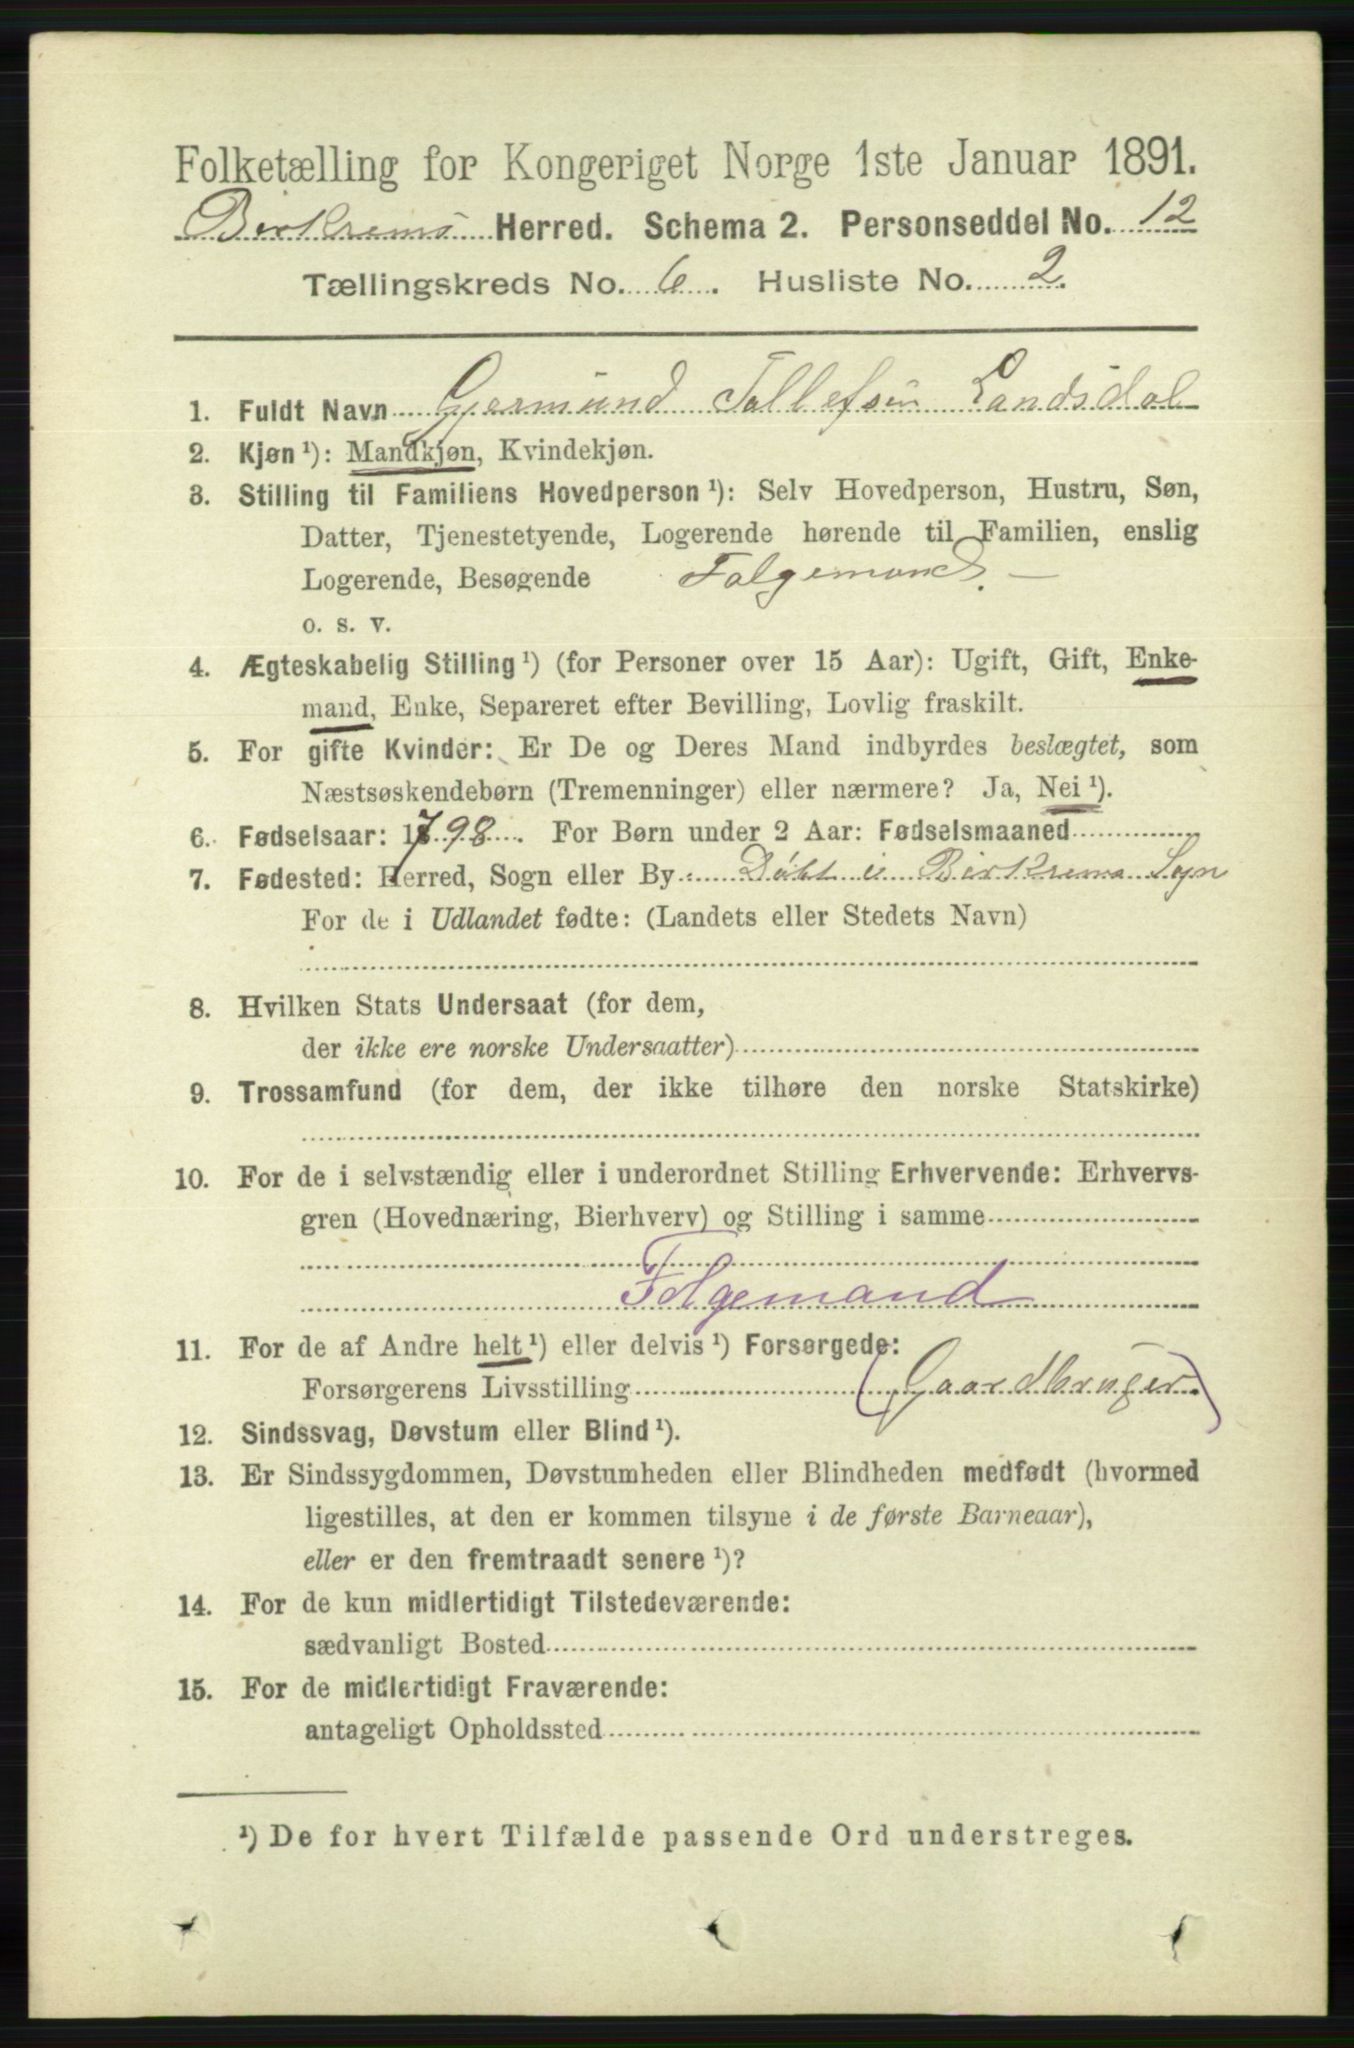 Folketælling for Kongeriget Norge 1ste Januar 1891.
Birkrems Herred. Schema 2. Personseddel No. 12
Tællingskreds No. 6. Husliste No. 2.
1. Fuldt Navn Gjermund Tollefsen Landsdal
2. Kjøn ¹): Mandkjøn, Kvindekjøn.
3. Stilling til Familiens Hovedperson ¹): Selv Hovedperson, Hustru, Søn,
Datter, Tjenestetyende, Logerende hørende til Familien, enslig
Logerende, Besøgende Folgemand. —
o. s. v.
4. Ægteskabelig Stilling ¹) (for Personer over 15 Aar): Ugift, Gift, Enke-
mand, Enke, Separeret efter Bevilling, Lovlig fraskilt.
5. For gifte Kvinder: Er De og Deres Mand indbyrdes beslægtet, som
Næstsøskendebørn (Tremenninger) eller nærmere? Ja, Nei ¹).
6. Fødselsaar: 1798. For Børn under 2 Aar: Fødselsmaaned
7. Fødested: Herred, Sogn eller By i Birkrems Sogn
For de i Udlandet fødte: (Landets eller Stedets Navn)
8. Hvilken Stats Undersaat (for dem,
der ikke ere norske Undersaatter)
9. Trossamfund (for dem, der ikke tilhøre den norske Statskirke)
10. For de i selvstændig eller i underordnet Stilling Erhvervende: Erhvervs-
gren (Hovednæring, Bierhverv) og Stilling i samme
Folgemand
11. For de af Andre helt ¹) eller delvis ¹) Forsørgede:
Forsørgerens Livsstilling (Gaardbruger)
12. Sindssvag, Døvstum eller Blind ¹).
13. Er Sindssygdommen, Døvstumheden eller Blindheden medfødt (hvormed
ligestilles, at den er kommen tilsyne i de første Barneaar),
eller er den fremtraadt senere ¹)?
14. For de kun midlertidigt Tilstedeværende:
sædvanligt Bosted
15. For de midlertidigt Fraværende:
antageligt Opholdssted
¹) De for hvert Tilfælde passende Ord understreges.